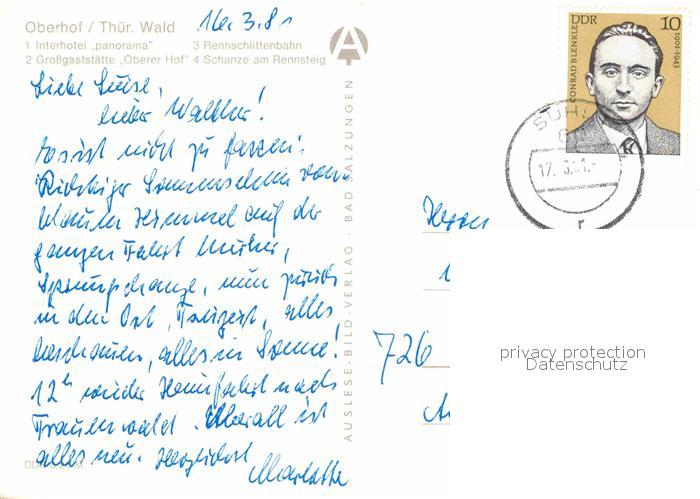 Oberhof / Thür. Wald
1 Interhotel „panorama" 3 Rennschlittenbahn
2 Großgaststätte „Oberer Hof" 4 Schanze am Rennsteig
16. 3. 81
Liebe Luise,
lieber Walther!
Es ist nicht zu fassen:
Richtiger Sonnenschein vom
blauen Himmel auf der
ganzen Fahrt hierher,
Sprungschanze, nun zurück
in den Ort, Freizeit, alles
anschauen, alles in Sonne!
12ʰ wieder Heimfahrt nach
Frauenwald. Überall ist
alles neu. Herzlichst
AUSLESE-BILD-VERLAG · BAD SALZUNGEN
DDR
10
CONRAD BLENKLE
1901-1943
SUHL
17. 3. 81
Herrn
726
privacy protection
Datenschutz